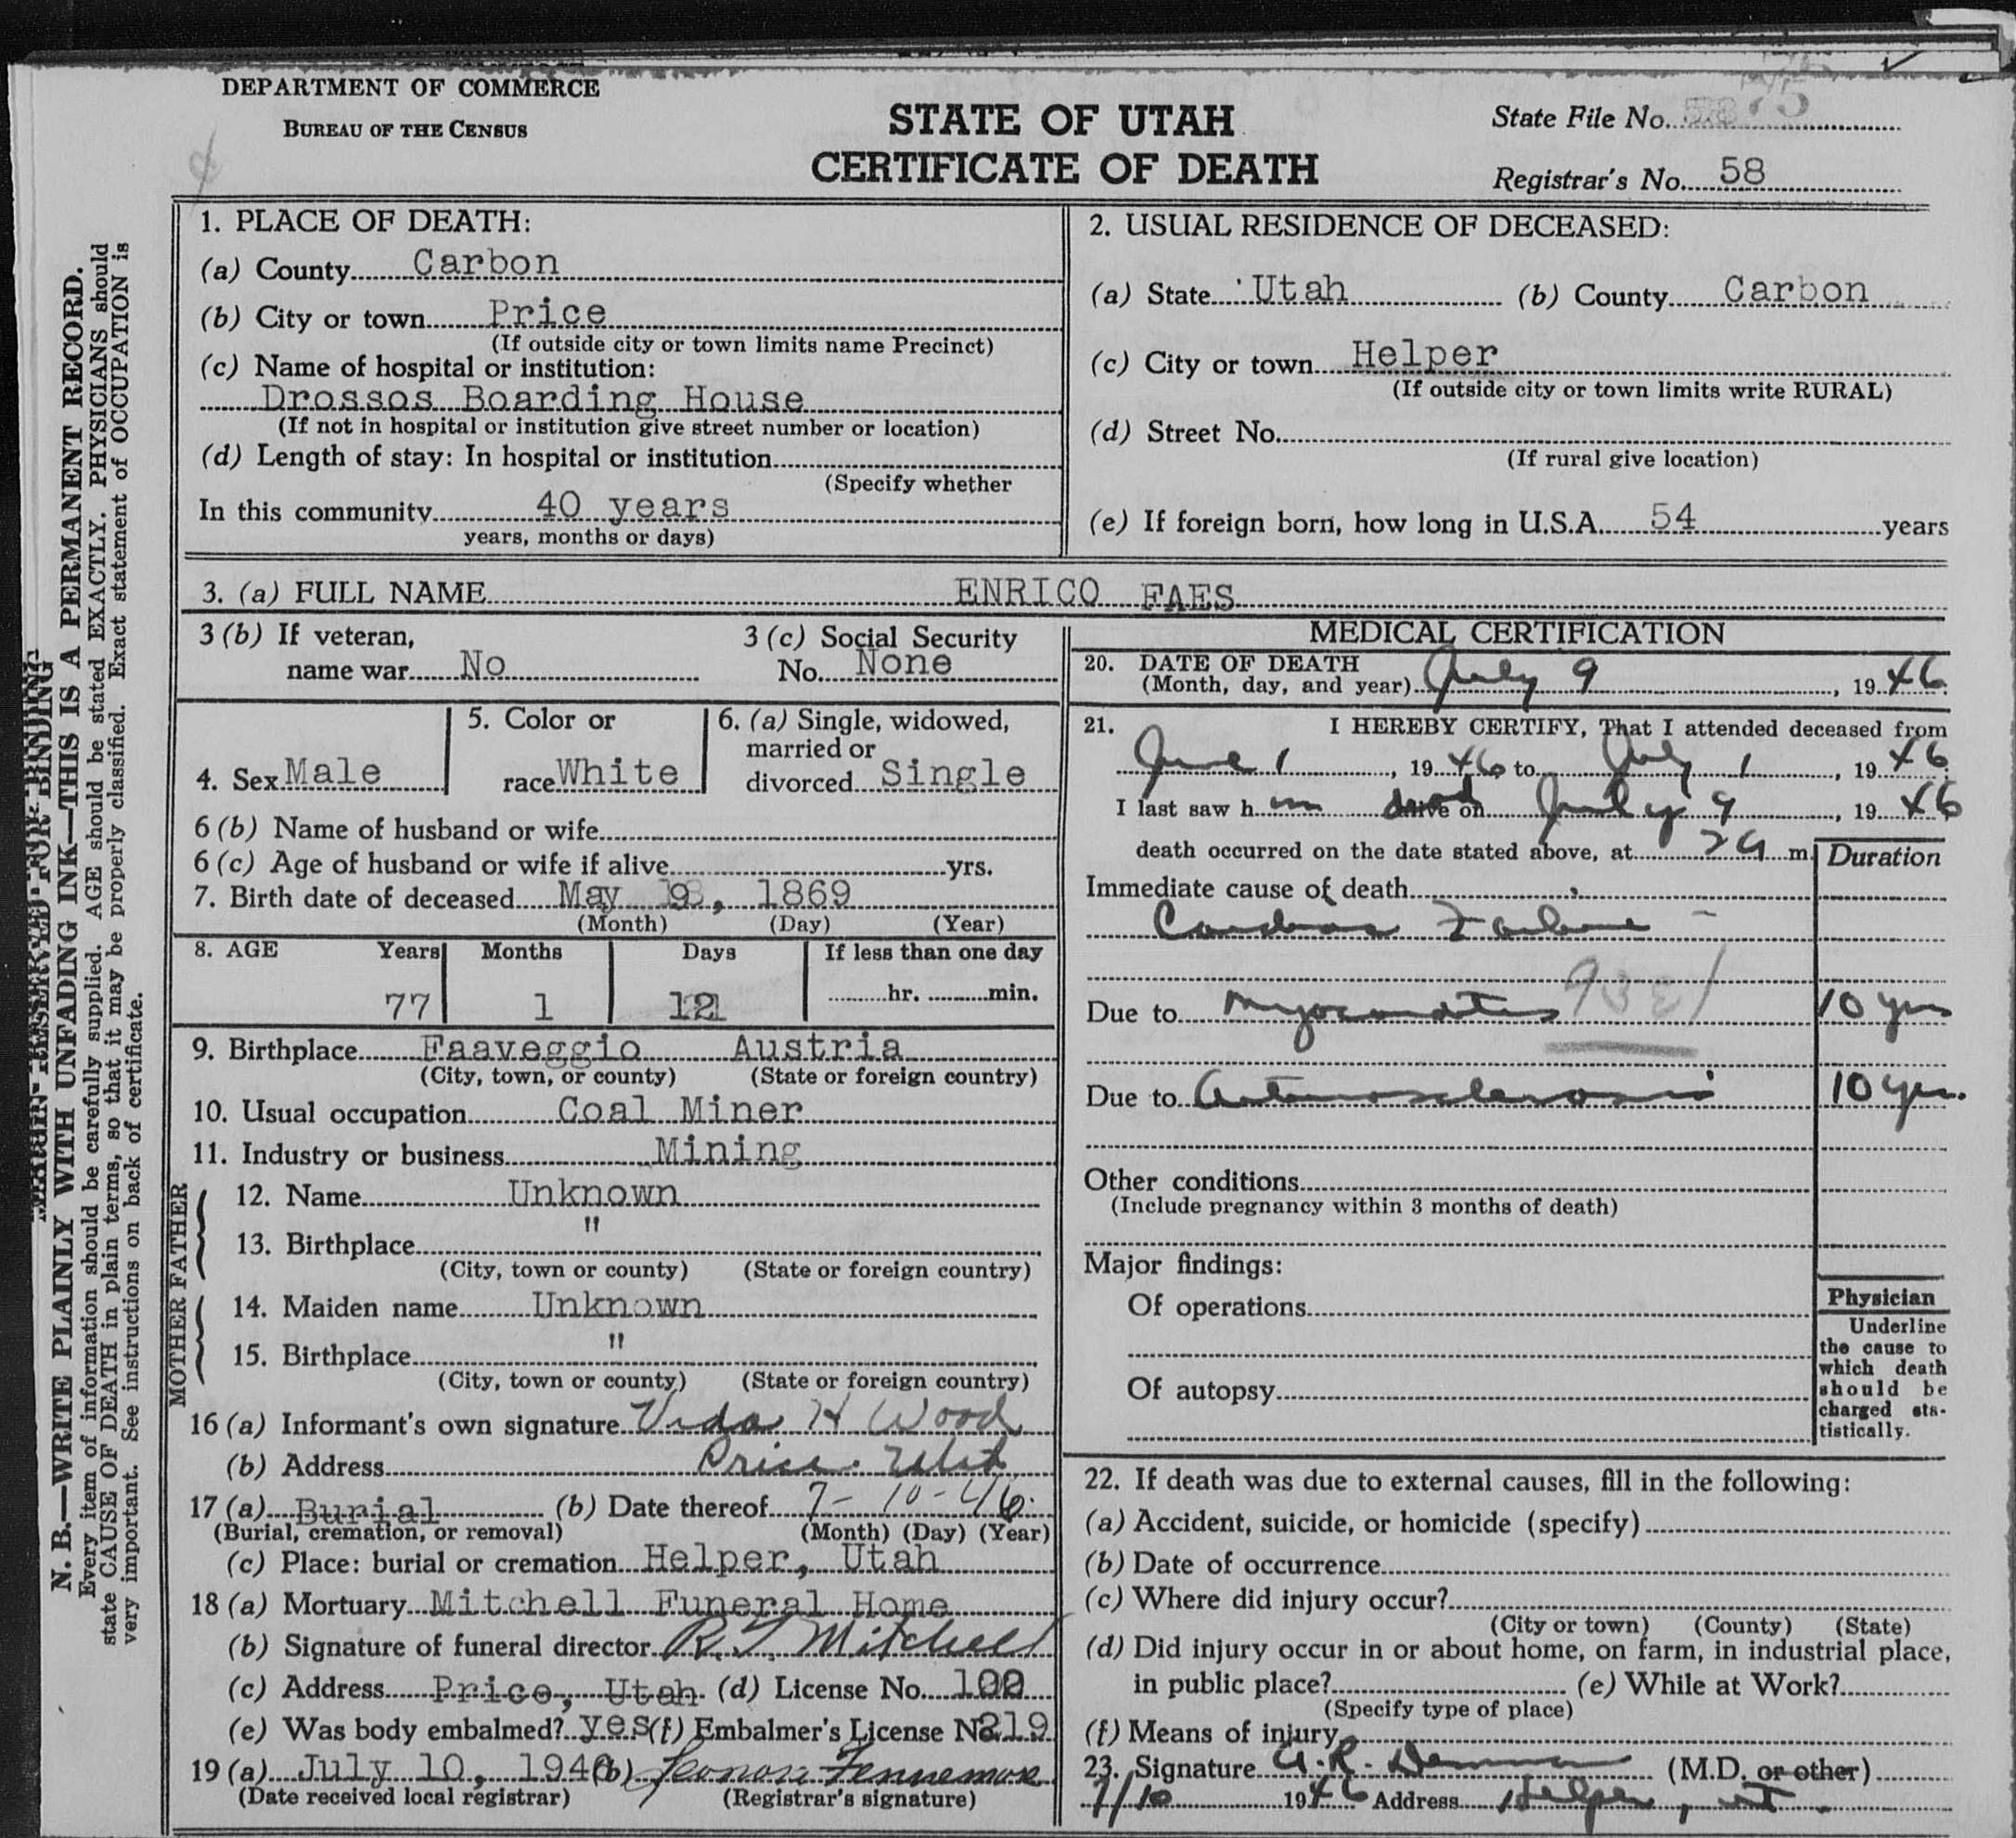 DEPARTMENT OF COMMERCE
BUREAU OF THE CENSUS
STATE OF UTAH
CERTIFICATE OF DEATH
State File No.
Registrar's No. 58
MARGIN RESERVED FOR BINDING
N. B.—WRITE PLAINLY WITH UNFADING INK—THIS IS A PERMANENT RECORD.
Every item of information should be carefully supplied. AGE should be stated EXACTLY. PHYSICIANS should
state CAUSE OF DEATH in plain terms, so that it may be properly classified. Exact statement of OCCUPATION is
very important. See instructions on back of certificate.
1. PLACE OF DEATH:
(a) County Carbon
(b) City or town Price
(If outside city or town limits name Precinct)
(c) Name of hospital or institution:
Drossos Boarding House
(If not in hospital or institution give street number or location)
(d) Length of stay: In hospital or institution
(Specify whether
In this community 40 years
years, months or days)
2. USUAL RESIDENCE OF DECEASED:
(a) State Utah (b) County Carbon
(c) City or town Helper
(If outside city or town limits write RURAL)
(d) Street No.
(If rural give location)
(e) If foreign born, how long in U.S.A. 54 years
3. (a) FULL NAME ENRICO FAES
3 (b) If veteran,
name war No
3 (c) Social Security
No. None
4. Sex Male
5. Color or
race White
6. (a) Single, widowed,
married or
divorced Single
6 (b) Name of husband or wife
6 (c) Age of husband or wife if alive yrs.
7. Birth date of deceased May , 1869
(Month) (Day) (Year)
8. AGE Years Months Days If less than one day
77 1 hr. min.
9. Birthplace Faaveggio Austria
(City, town, or county) (State or foreign country)
10. Usual occupation Coal Miner
11. Industry or business Mining
FATHER
12. Name Unknown
13. Birthplace "
(City, town or county) (State or foreign country)
MOTHER
14. Maiden name Unknown
15. Birthplace "
(City, town or county) (State or foreign country)
16 (a) Informant's own signature Vida H Wood
(b) Address Price Utah
17 (a) Burial (b) Date thereof 7-10-46
(Burial, cremation, or removal) (Month) (Day) (Year)
(c) Place: burial or cremation Helper, Utah
18 (a) Mortuary Mitchell Funeral Home
(b) Signature of funeral director Mitchell
(c) Address Price, Utah (d) License No. 100
(e) Was body embalmed? yes (f) Embalmer's License No. 219
19 (a) July 10, 1946 (b) Fennemore
(Date received local registrar) (Registrar's signature)
MEDICAL CERTIFICATION
20. DATE OF DEATH
(Month, day, and year) July 9, 1946
21. I HEREBY CERTIFY, That I attended deceased from
June 1, 1946 to July 1, 1946
I last saw him dead alive on July 9, 1946
death occurred on the date stated above, at m.
Duration
Immediate cause of death
Cardiac Failure
Due to Myocarditis 10 yrs
Due to Arteriosclerosis 10 yrs.
Other conditions
(Include pregnancy within 3 months of death)
Major findings:
Of operations
Of autopsy
Physician
Underline
the cause to
which death
should be
charged sta-
tistically.
22. If death was due to external causes, fill in the following:
(a) Accident, suicide, or homicide (specify)
(b) Date of occurrence
(c) Where did injury occur?
(City or town) (County) (State)
(d) Did injury occur in or about home, on farm, in industrial place,
in public place? (e) While at Work?
(Specify type of place)
(f) Means of injury
23. Signature (M.D. or other)
7/10 1946 Address Helper, Ut.